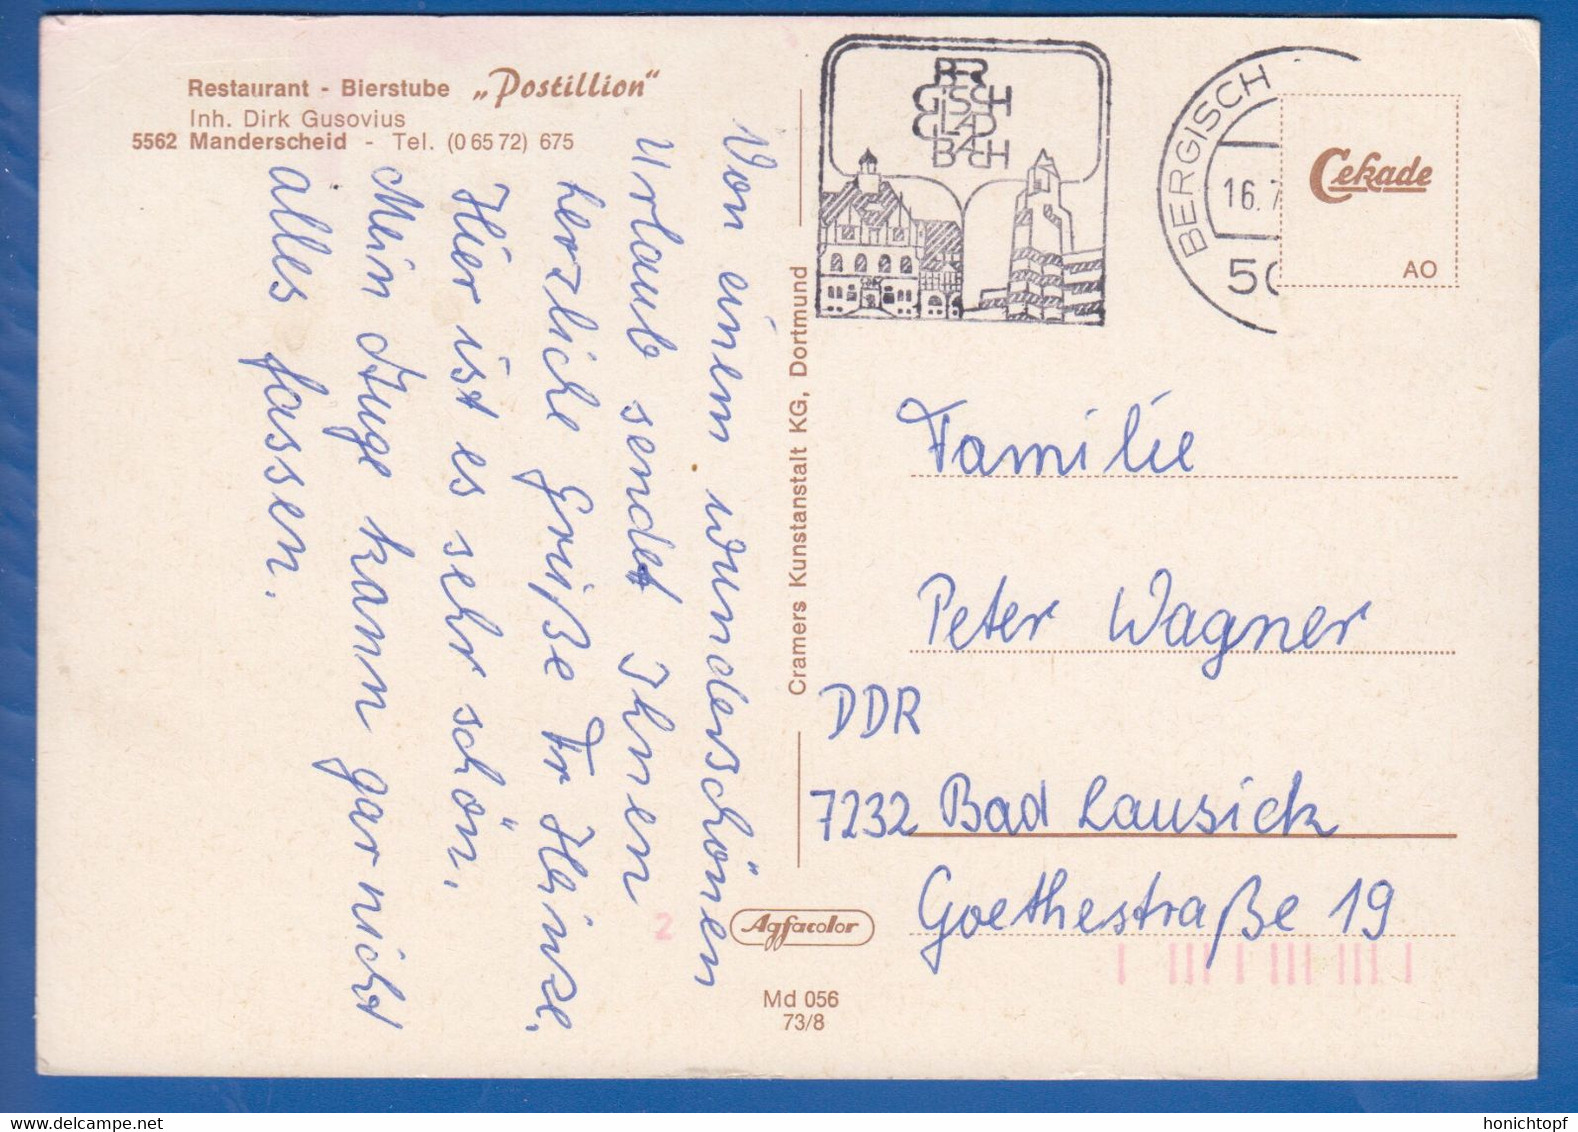 Restaurant - Bierstube „Postillion"
Inh. Dirk Gusovius
5562 Manderscheid - Tel. (0 65 72) 675
Von einem wunderschönen
Urlaub sendet Ihnen
herzliche Grüße Fr Hinse.
Hier ist es sehr schön.
Mein Auge kann gar nicht
alles fassen.
Cramers Kunstanstalt KG, Dortmund
Agfacolor
Md 056
73/8
2
BER
GISCH
GLAD
BACH
BERGISCH
16.7
50
Cekade
AO
Familie
Peter Wagner
DDR
7232 Bad Lausick
Goethestraße 19
honichtopf